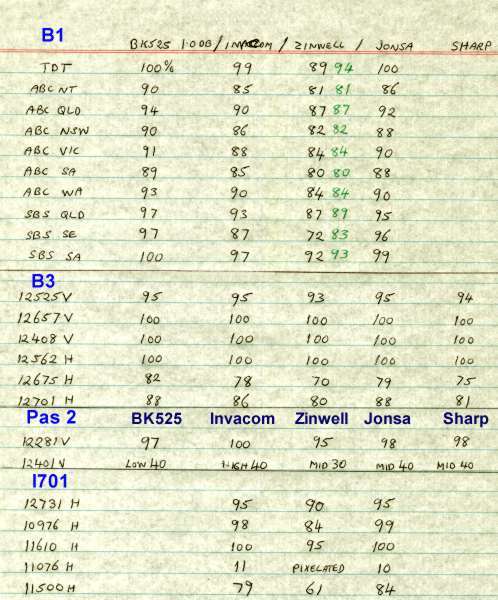 B1
BK525 1.0DB / INVACOM / ZINWELL / JONSA SHARP
TDT 100% 99 89 94 100
ABC NT 90 85 81 81 86
ABC QLD 94 90 87 87 92
ABC NSW 90 86 82 82 88
ABC VIC 91 88 84 84 90
ABC SA 89 85 80 80 88
ABC WA 93 90 84 84 90
SBS QLD 97 93 87 89 95
SBS SE 97 87 72 83 96
SBS SA 100 97 92 93 99
B3
12525 V 95 95 93 95 94
12657 V 100 100 100 100 100
12408 V 100 100 100 100 100
12562 H 100 100 100 100 100
12675 H 82 78 70 79 75
12701 H 88 86 80 88 81
Pas 2 BK525 Invacom Zinwell Jonsa Sharp
12281 V 97 100 95 98 98
12401 V LOW 40 HIGH 40 MID 30 MID 40 MID 40
I701
12731 H 95 90 95
10976 H 98 84 99
11610 H 100 95 100
11076 H 11 PIXELATED 10
11500 H 79 61 84